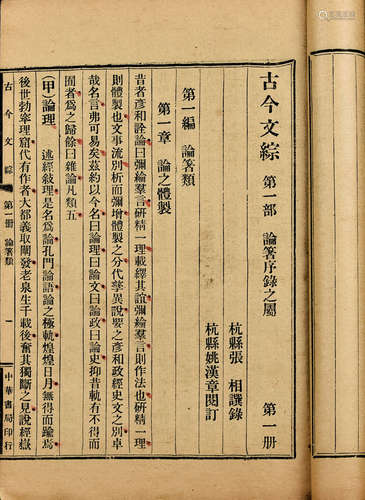 古今文綜 第一部 論箸序錄之屬 第一册
杭縣張 相撰錄
杭縣姚漢章閱訂
第一編 論箸類
第一章 論之體製
昔者彥和詮論曰彌綸羣言研精一理載繹其誼彌綸羣言則作法也研精一理
則體製也文事流別析而彌增體製之分代孳異說要之彥和政經史文之別卓
哉名言弗可易矣茲約以今名曰論理曰論文曰論政曰論史抑昔軌有不得而
囿者爲之歸餘曰雜論凡類五
(甲)論理 述經敍理是名爲論孔門論語論之極軌煌煌日月無得而踰焉
後世勃窣理窟代有作者大都義取闡發老泉生千載後奮其獨斷之見說經嶽
古今文綜 第一册 論箸類 一 中華書局印行